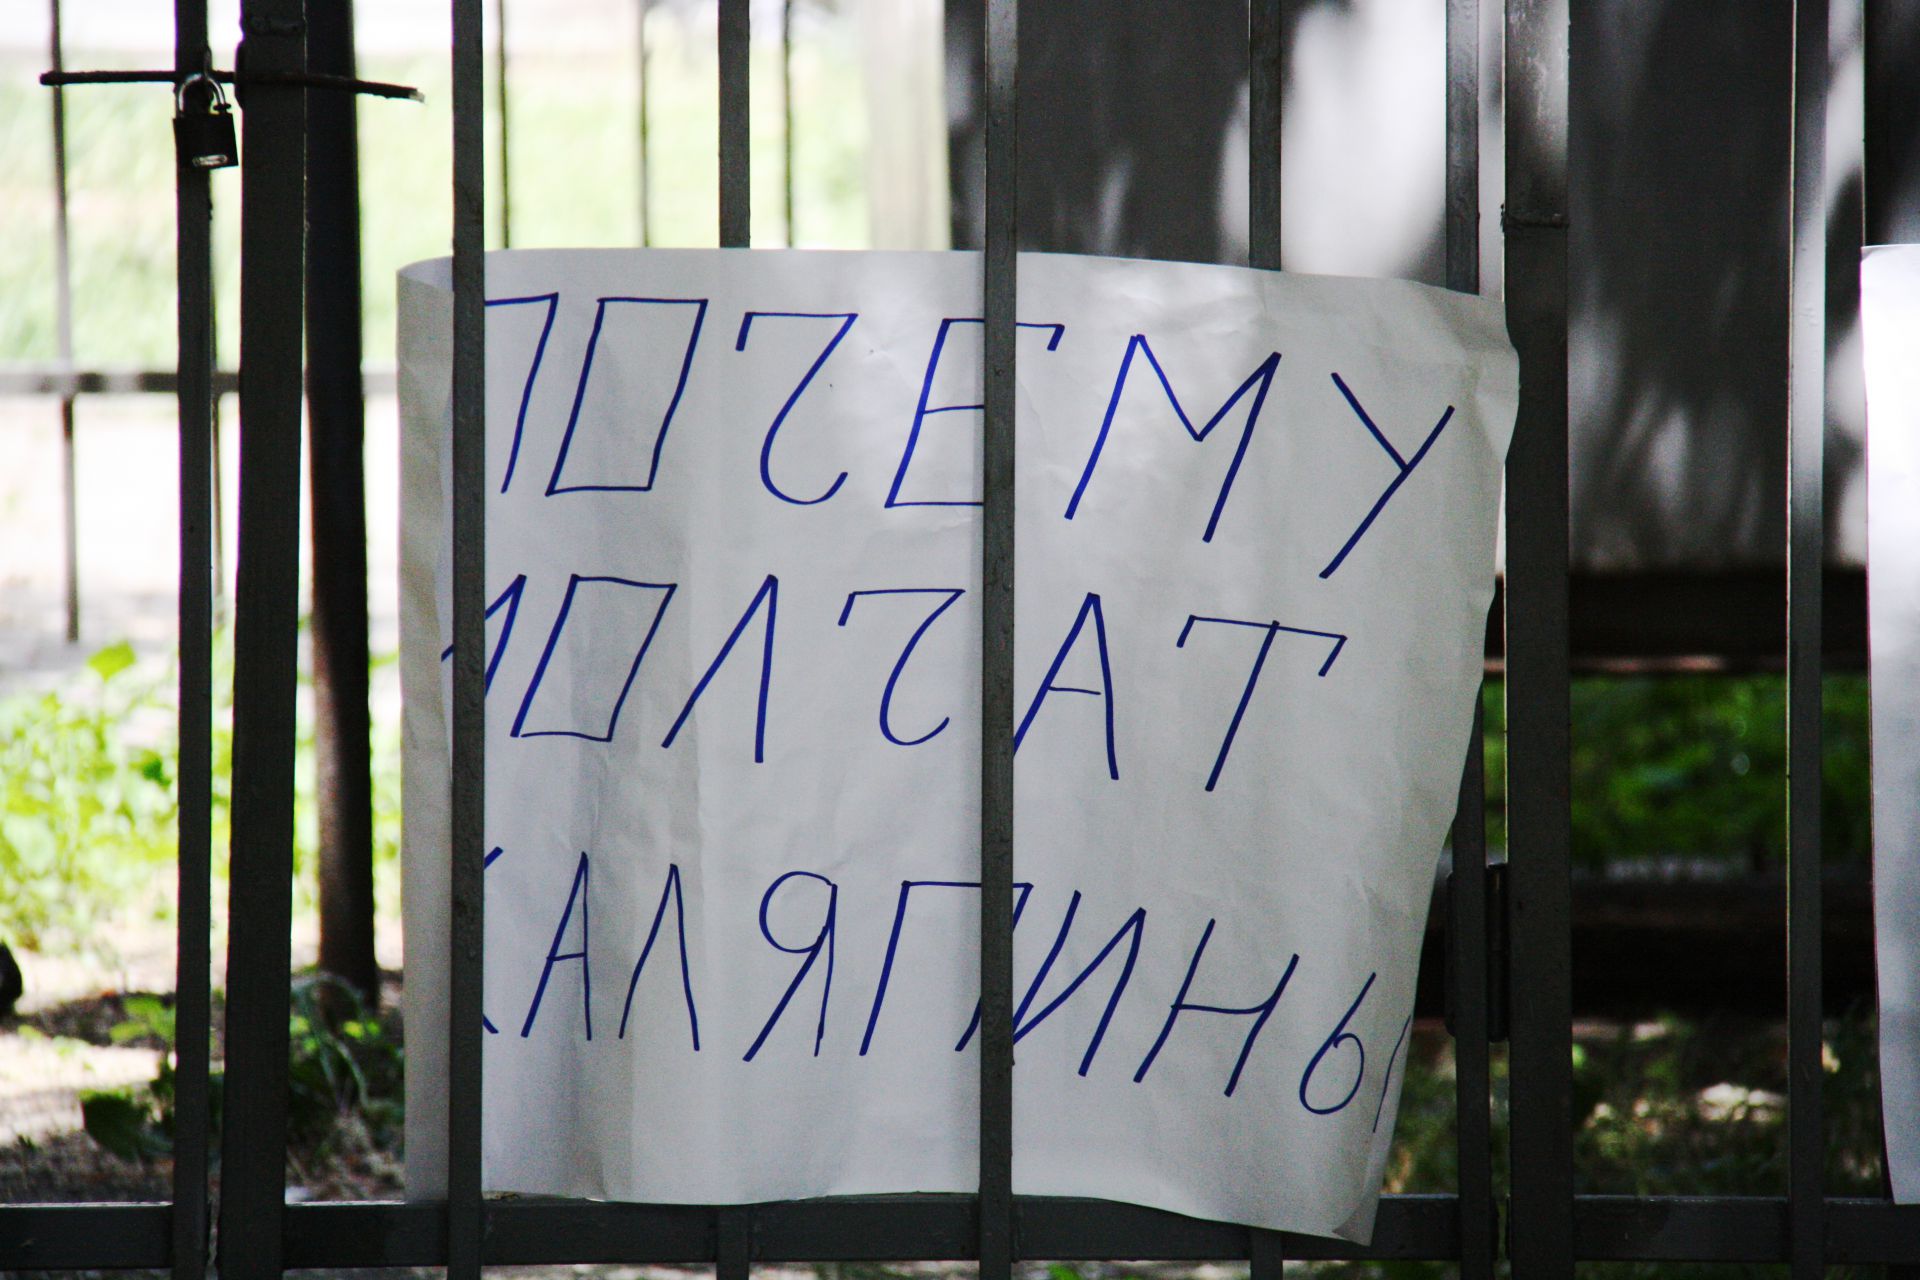 ПОЧЕМУ
МОЛЧАТ
КАЛЯПИНЫ